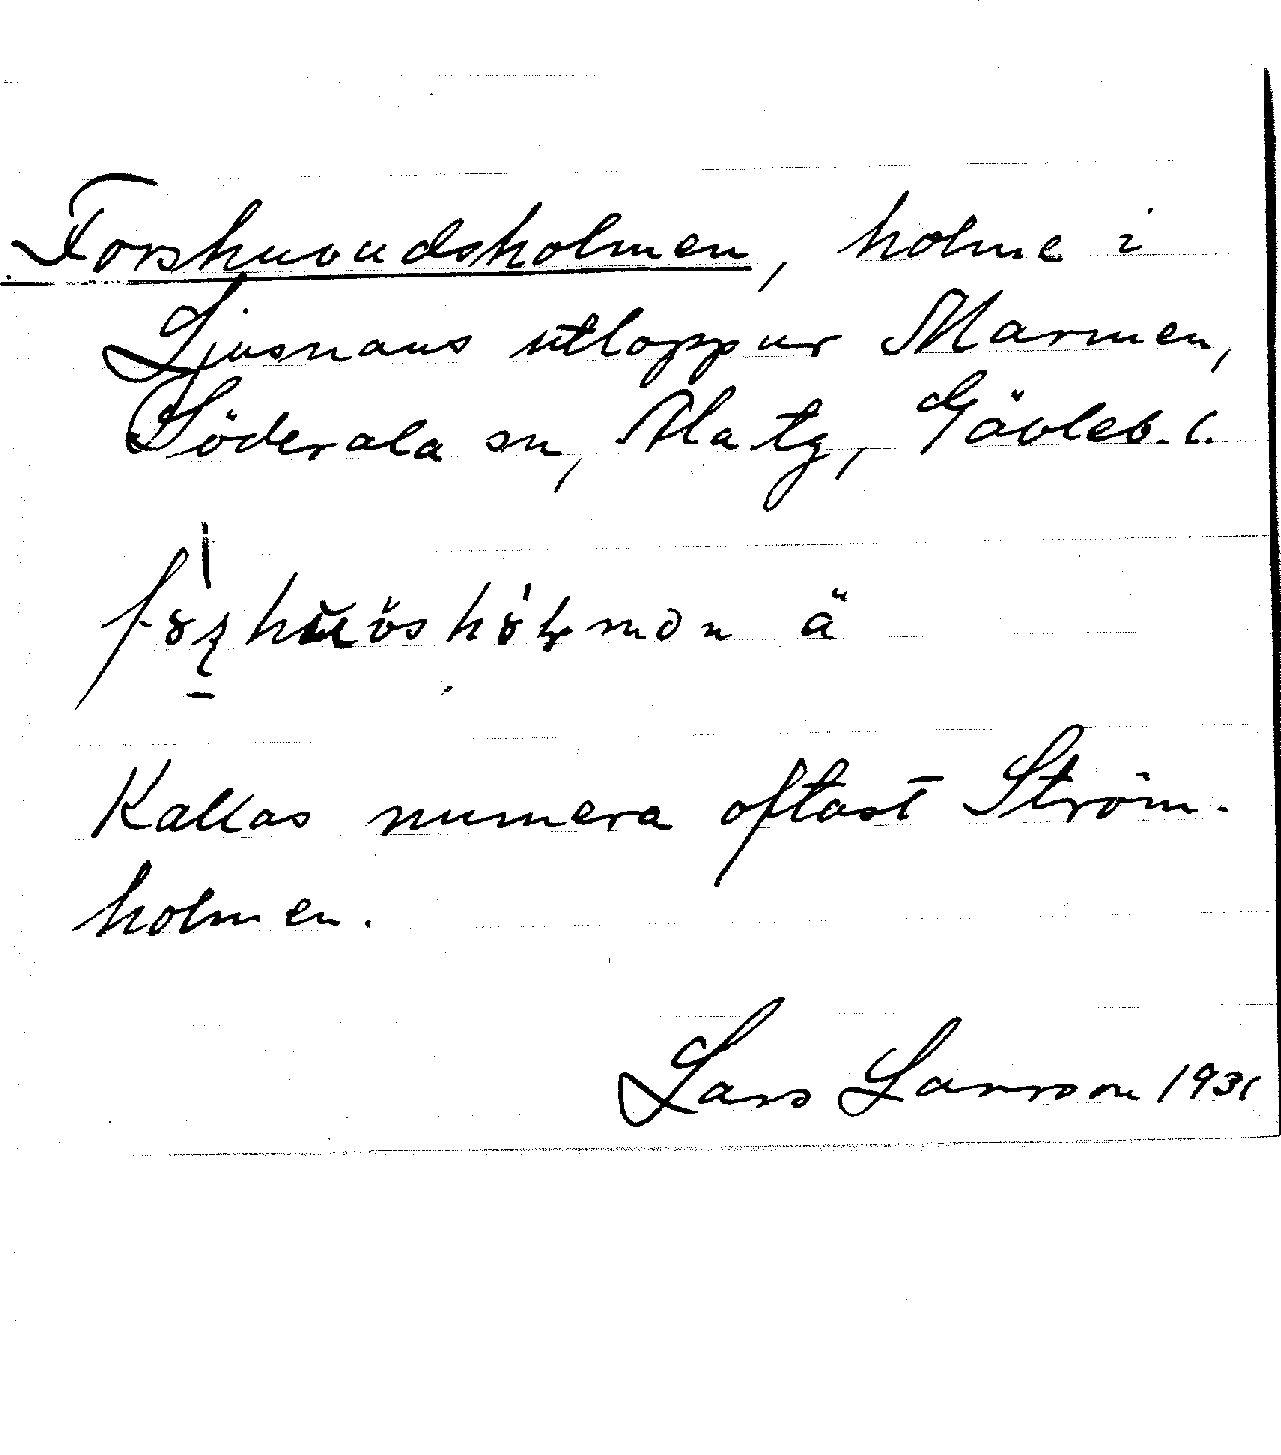 Forshuvudsholmen, holme i
Ljusnans utlopp ur Marmen,
Söderala sn, Ala tg, Gävleb. l.
ä
Kallas numera oftast Ström-
holmen.
Lars Larsson 1931